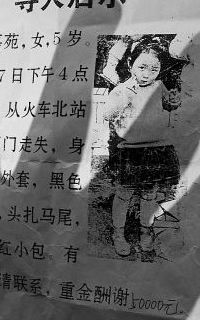 寻人启示
苑,女,5岁。
7日下午4点
从火车北站
门走失,身
外套,黑色
,头扎马尾,
红小包。有
请联系,重金酬谢50000元。